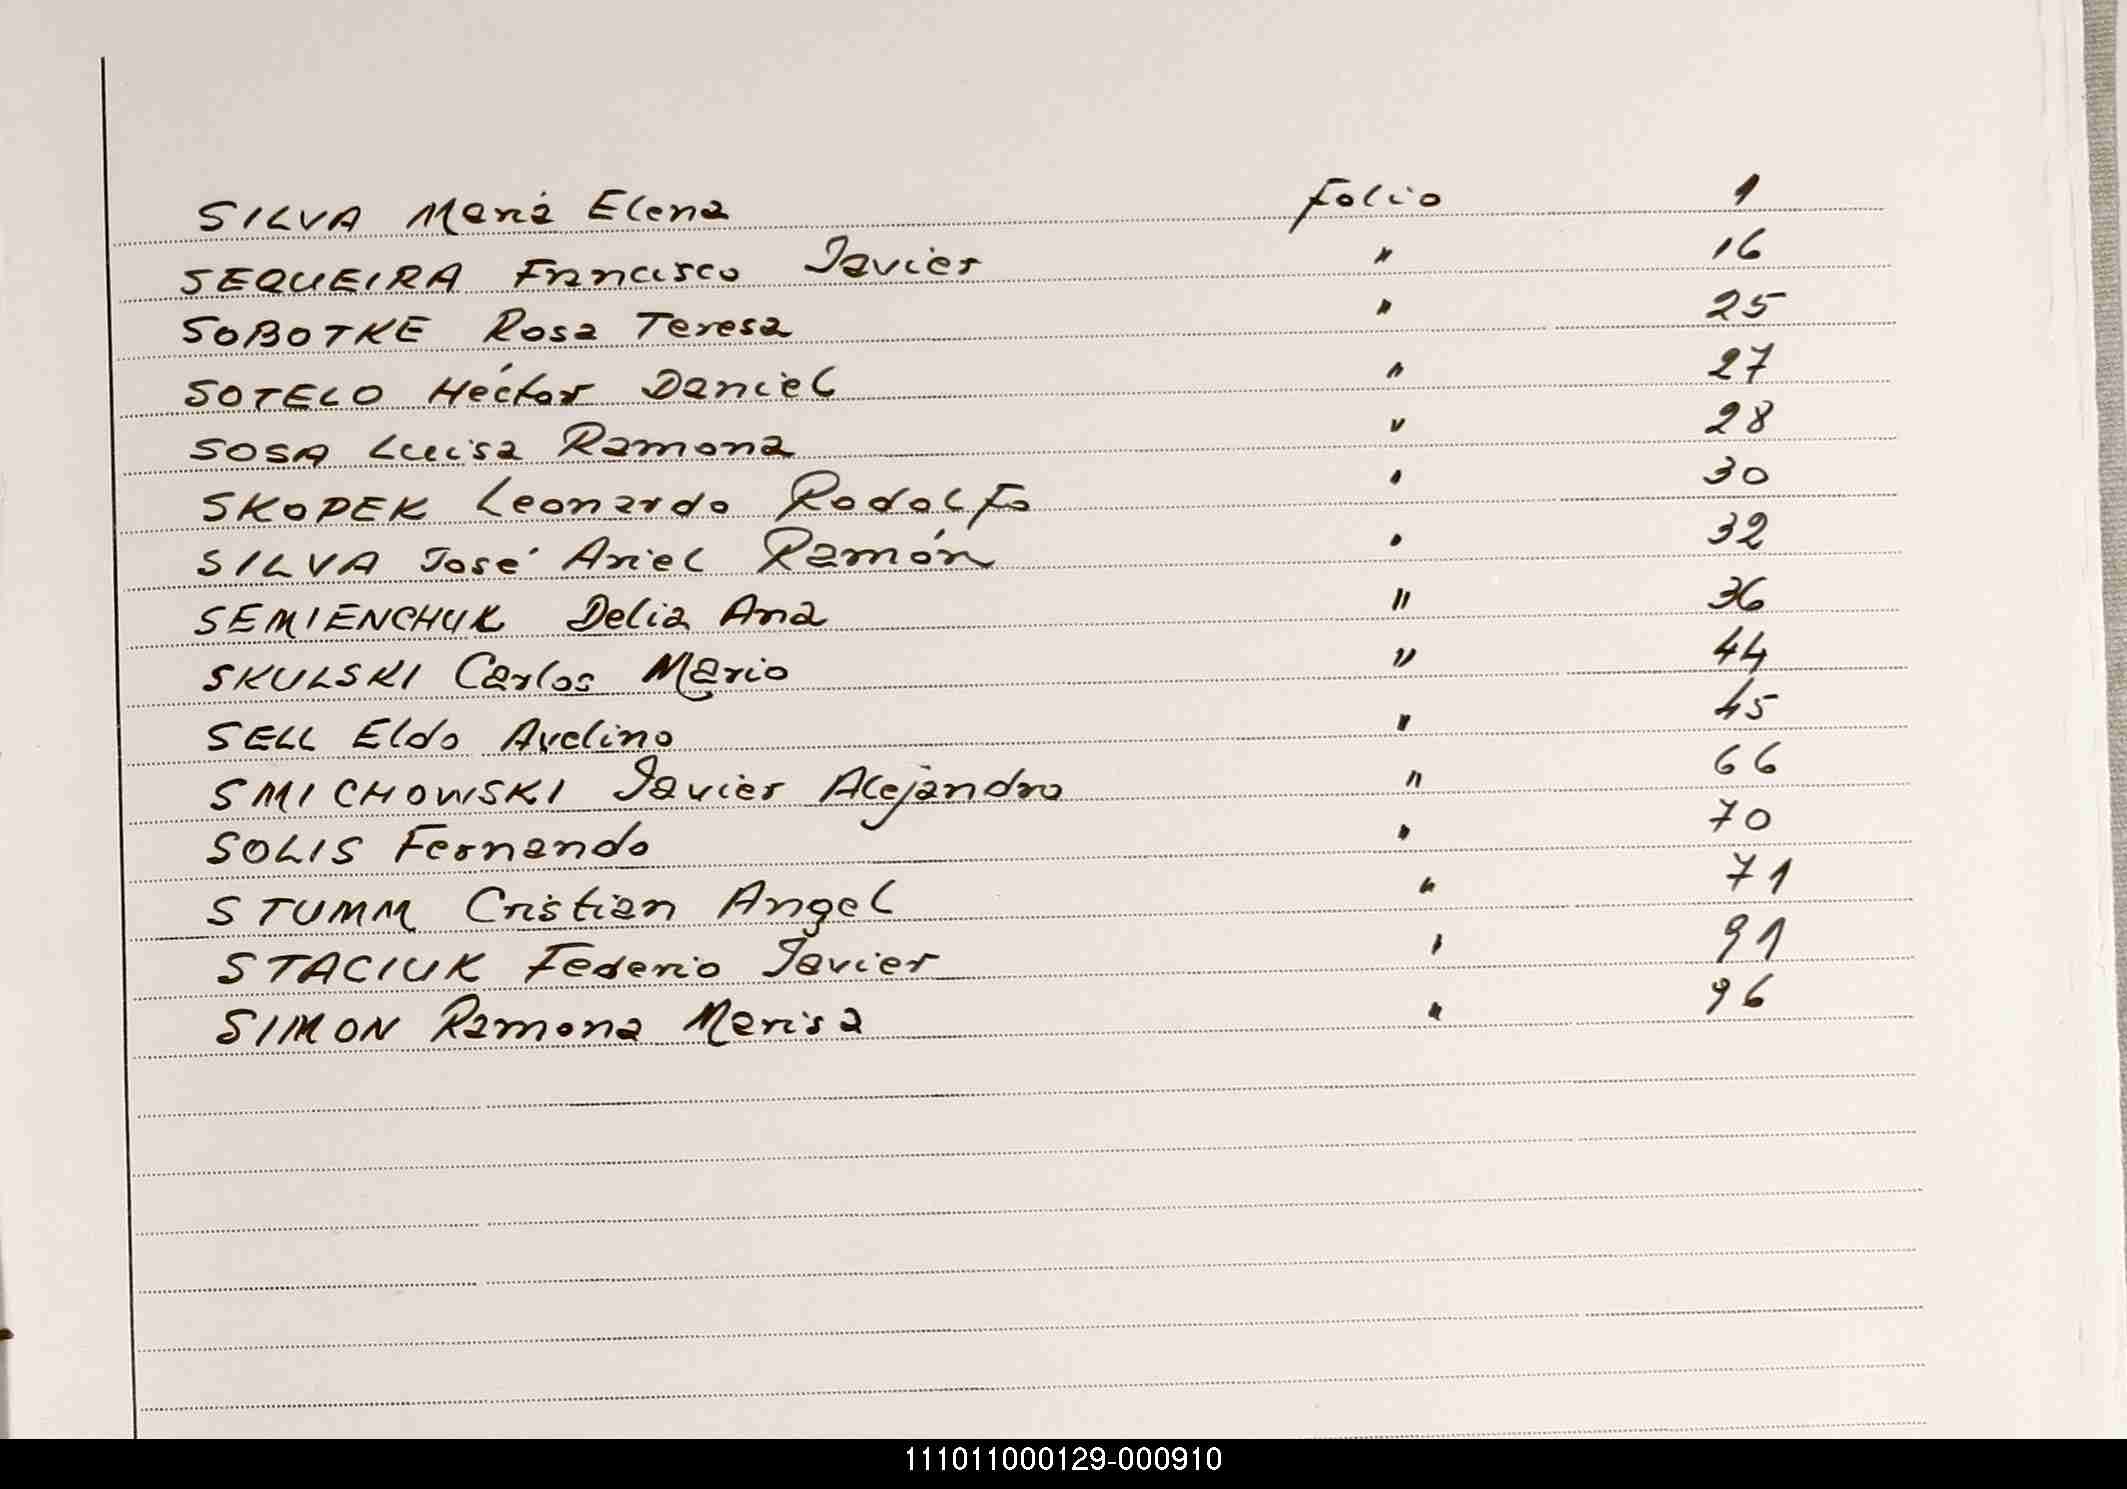 SILVA María Elena folio 1
SEQUEIRA Francisco Javier " 16
SOBOTKE Rosa Teresa " 25
SOTELO Héctor Daniel " 27
SOSA Luisa Ramona " 28
SKOPEK Leonardo Rodolfo " 30
SILVA José Ariel Ramón " 32
SEMIENCHUK Delia Ana " 36
SKULSKI Carlos Mario " 44
SELL Eldo Avelino " 45
SMICHOWSKI Javier Alejandro " 66
SOLIS Fernando " 70
STUMM Cristian Angel " 71
STACIUK Federio Javier " 91
SIMON Ramona Marisa " 96
111011000129-000910